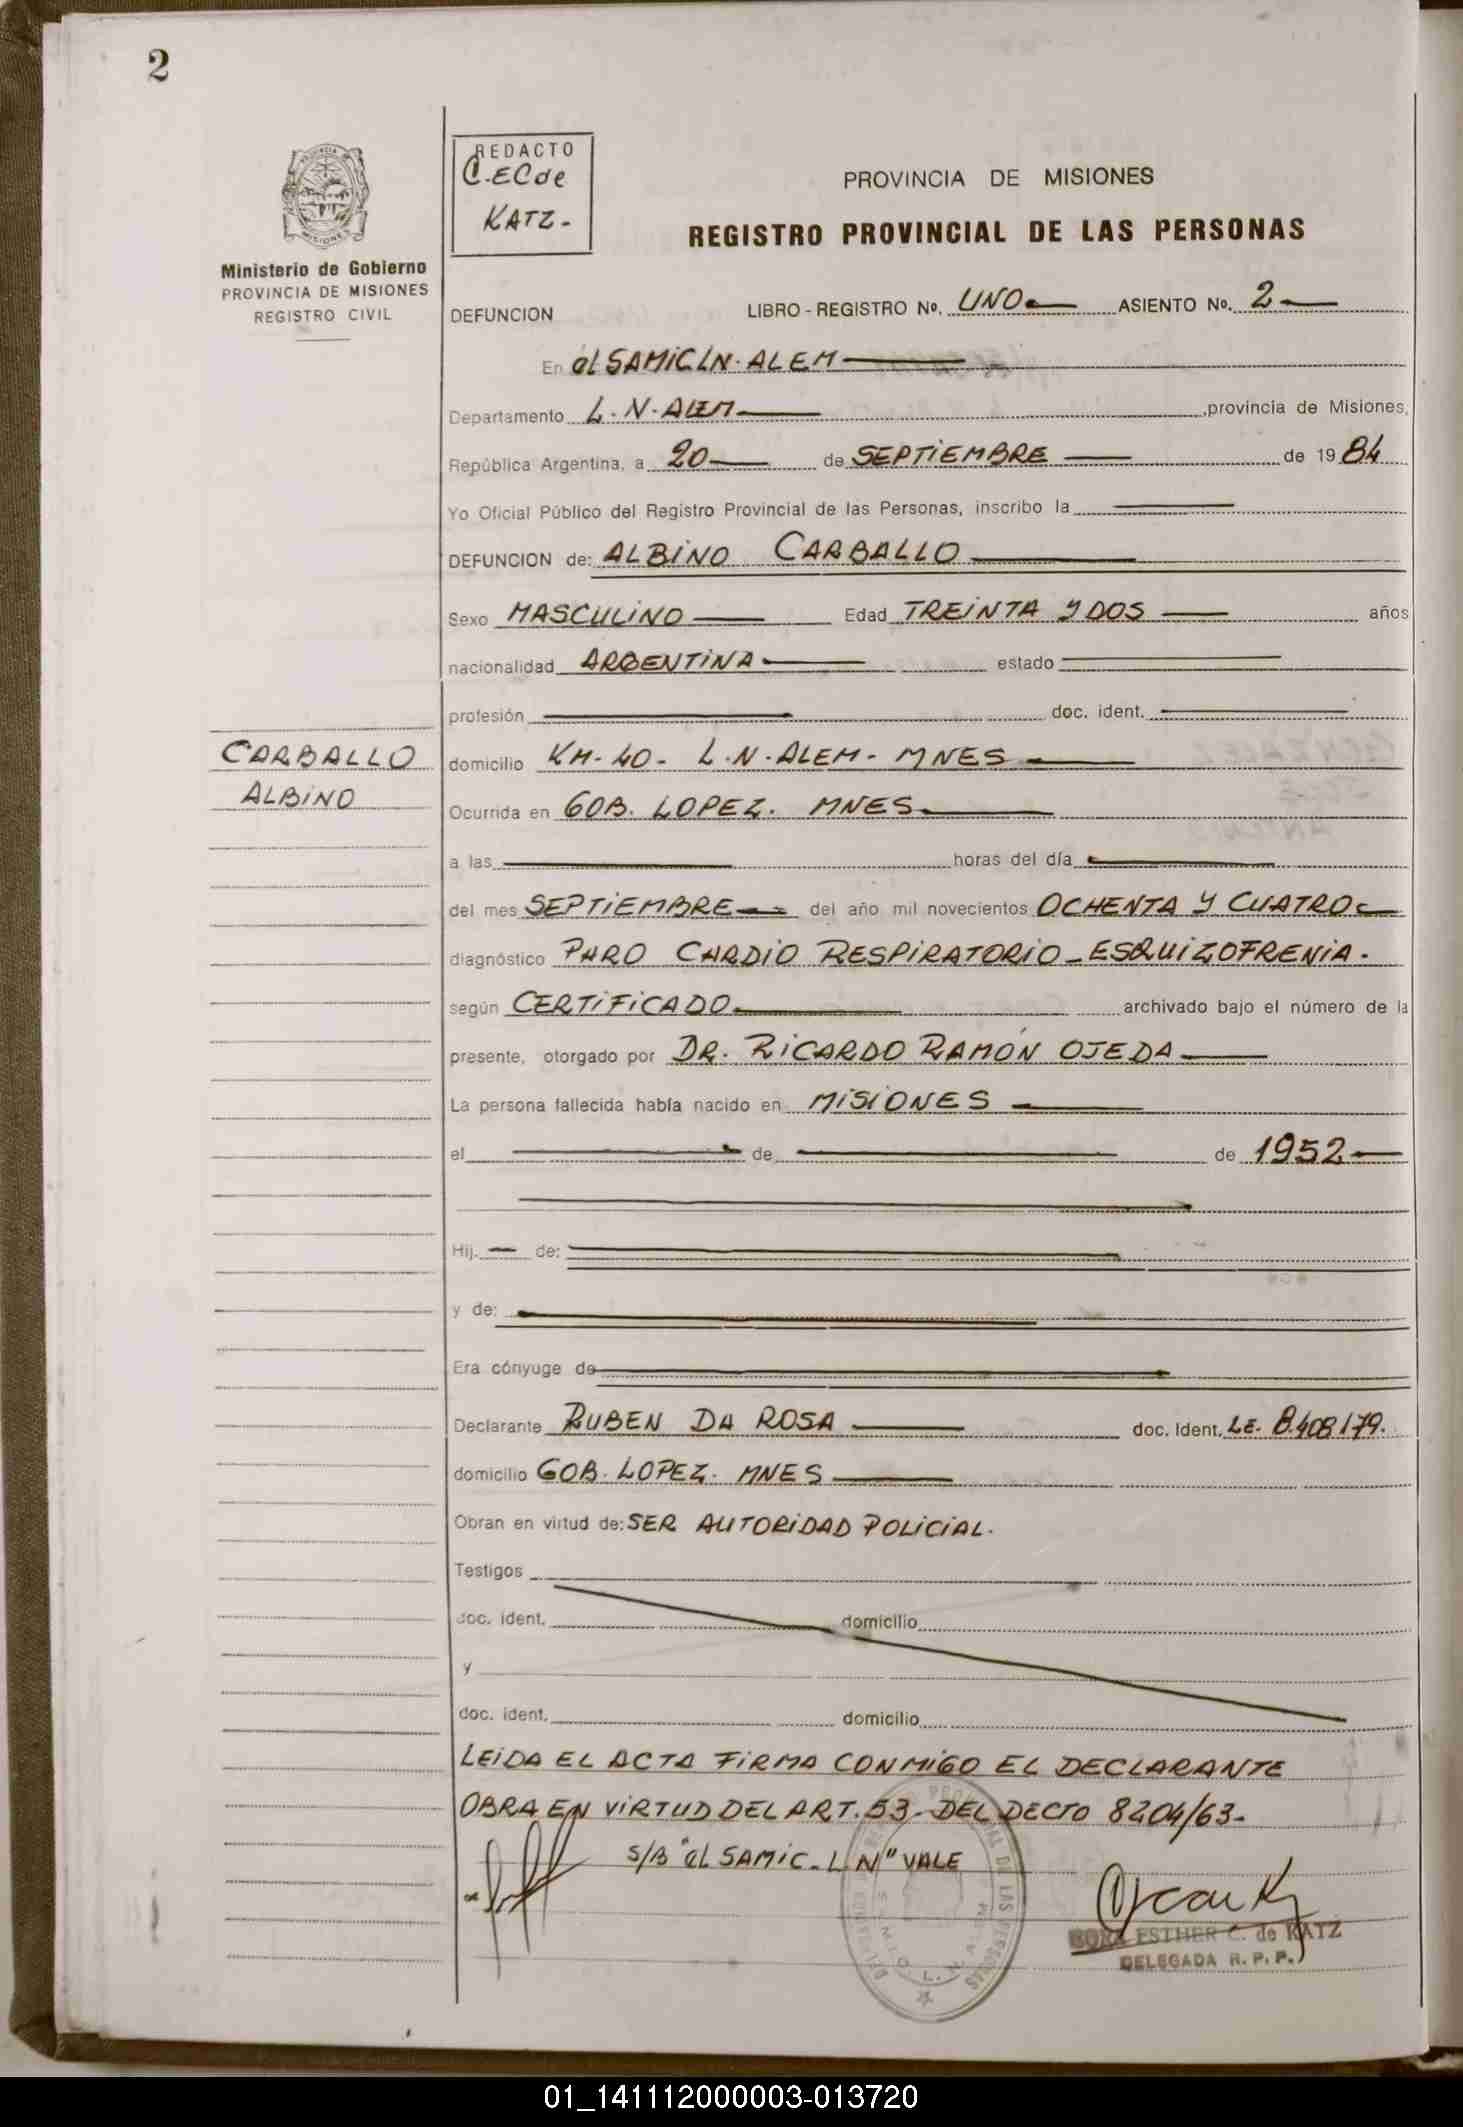 2
PROVINCIA DE
MISIONES
Ministerio de Gobierno
PROVINCIA DE MISIONES
REGISTRO CIVIL
REDACTO
C.EC de
KATZ-
PROVINCIA DE MISIONES
REGISTRO PROVINCIAL DE LAS PERSONAS
DEFUNCION LIBRO - REGISTRO Nº. UNO ASIENTO Nº. 2
En el SAMIC LN. ALEM
Departamento L. N. ALEM , provincia de Misiones,
República Argentina, a 20 de SEPTIEMBRE de 19 84
Yo Oficial Público del Registro Provincial de las Personas, inscribo la
DEFUNCION de: ALBINO CARBALLO
Sexo MASCULINO Edad TREINTA Y DOS años
nacionalidad ARGENTINA estado
profesión doc. ident.
CARBALLO
ALBINO
domicilio KM-40- L.N.ALEM- MNES
Ocurrida en GOB. LOPEZ. MNES
a las horas del día
del mes SEPTIEMBRE del año mil novecientos OCHENTA Y CUATRO
diagnóstico PARO CARDIO RESPIRATORIO - ESQUIZOFRENIA.
según CERTIFICADO archivado bajo el número de la
presente, otorgado por DR. RICARDO RAMÓN OJEDA
La persona fallecida había nacido en MISIONES
el de de 1952
Hij. de:
y de:
Era cónyuge de
Declarante RUBEN DA ROSA doc. Ident. LE. 8.408179.
domicilio GOB. LOPEZ. MNES
Obran en virtud de: SER AUTORIDAD POLICIAL.
Testigos
doc. ident. domicilio
y
doc. ident. domicilio
LEIDA EL ACTA FIRMA CONMIGO EL DECLARANTE
OBRA EN VIRTUD DEL ART. 53- DEL DECTO 8204/63-
S/B "el SAMIC- L.N" VALE
ESTHER C. de KATZ
DELEGADA R. P. P.
01_141112000003-013720